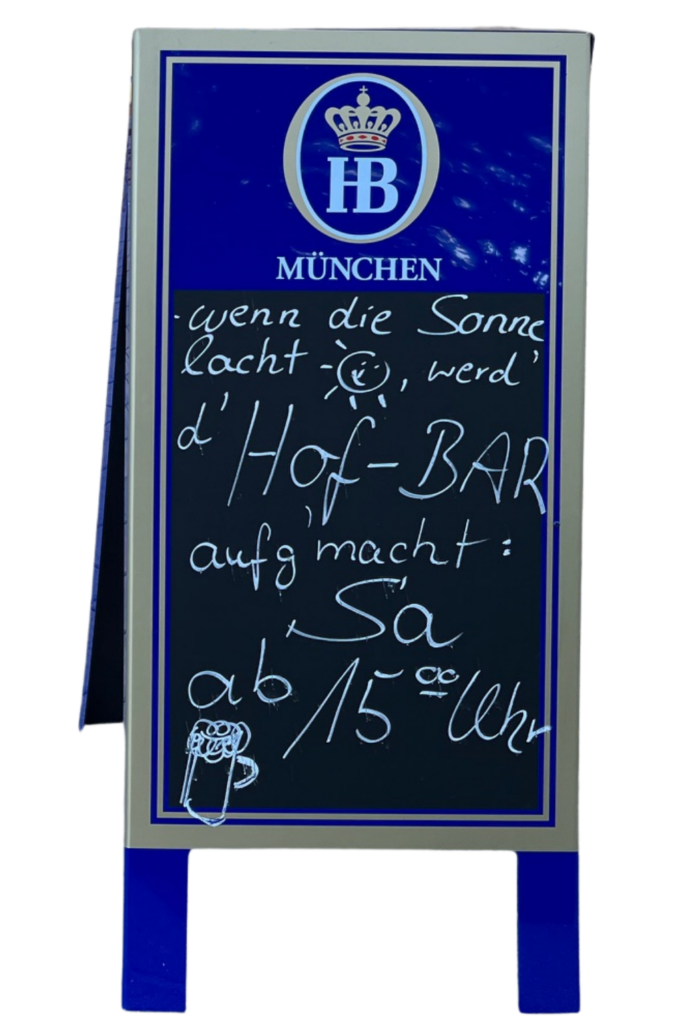 HB
MÜNCHEN
wenn die Sonne
lacht, werd'
d' Hof-BAR
aufg'macht:
Sa
ab 15 00 Uhr